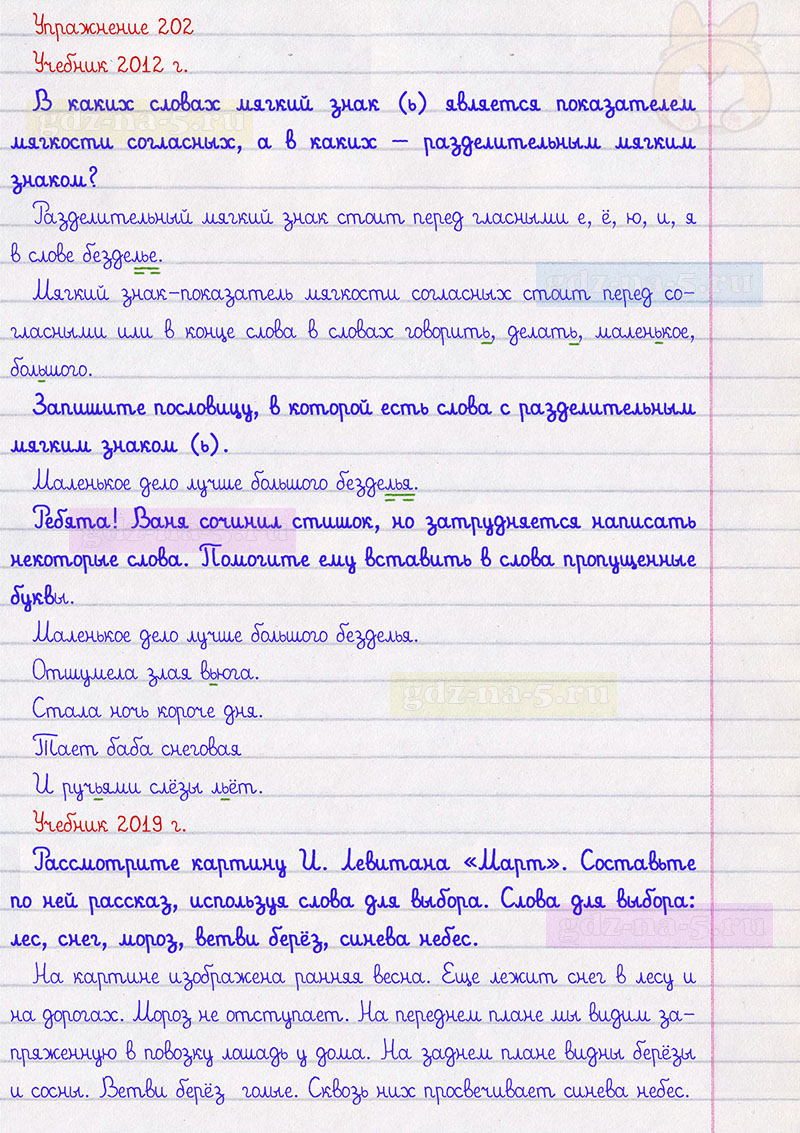 Упражнение 202
Учебник 2012 г.
В каких словах мягкий знак (ь) является показателем
мягкости согласных, а в каких – разделительным мягким
знаком?
Разделительный мягкий знак стоит перед гласными е, ё, ю, и, я
в слове безделье.
Мягкий знак-показатель мягкости согласных стоит перед со-
гласными или в конце слова в словах говорить, делать, маленькое,
большого.
Запишите пословицу, в которой есть слова с разделительным
мягким знаком (ь).
Маленькое дело лучше большого безделья.
Ребята! Ваня сочинил стишок, но затрудняется написать
некоторые слова. Помогите ему вставить в слова пропущенные
буквы.
Маленькое дело лучше большого безделья.
Отшумела злая вьюга.
Стала ночь короче дня.
Тает баба снеговая
И ручьями слёзы льёт.
Учебник 2019 г.
Рассмотрите картину И. Левитана «Март». Составьте
по ней рассказ, используя слова для выбора. Слова для выбора:
лес, снег, мороз, ветви берёз, синева небес.
На картине изображена ранняя весна. Еще лежит снег в лесу и
на дорогах. Мороз не отступает. На переднем плане мы видим за-
пряженную в повозку лошадь у дома. На заднем плане видны берёзы
и сосны. Ветви берёз голые. Сквозь них просвечивает синева небес.
gdz-na-5.ru
gdz-na-5.ru
gdz-na-5.ru
gdz-na-5.ru
gdz-na-5.ru